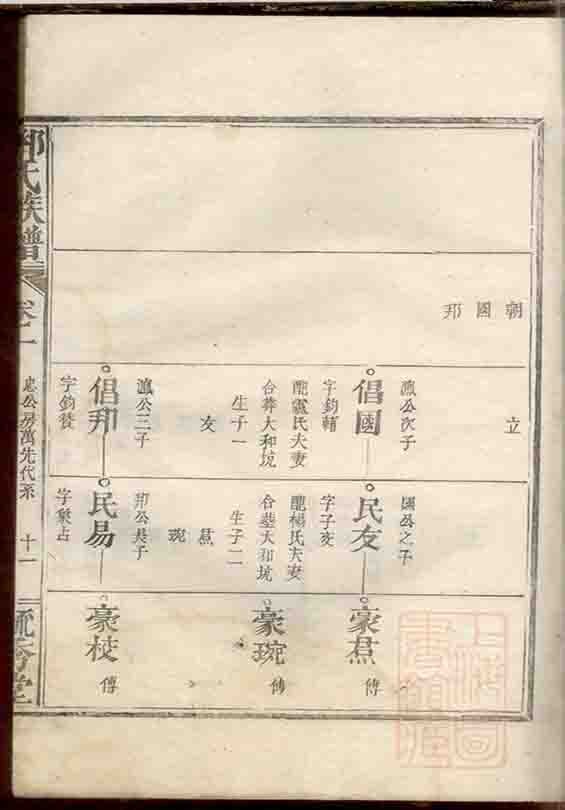 朝國邦
立
瀛公次子
倡國
字鈞輔
配盧氏夫妻
合葬大和坑
生子一
友
瀛公三子
倡邦
字鈞贊
國公之子
民友
字子交
配楊氏夫妻
合塟大和坑
生子二
焄
琬
邦公長子
民易
字象占
豪焄
傳
豪琬
傳
豪校
傳
氏族譜
卷一
忠公房萬先代系
十一
堂